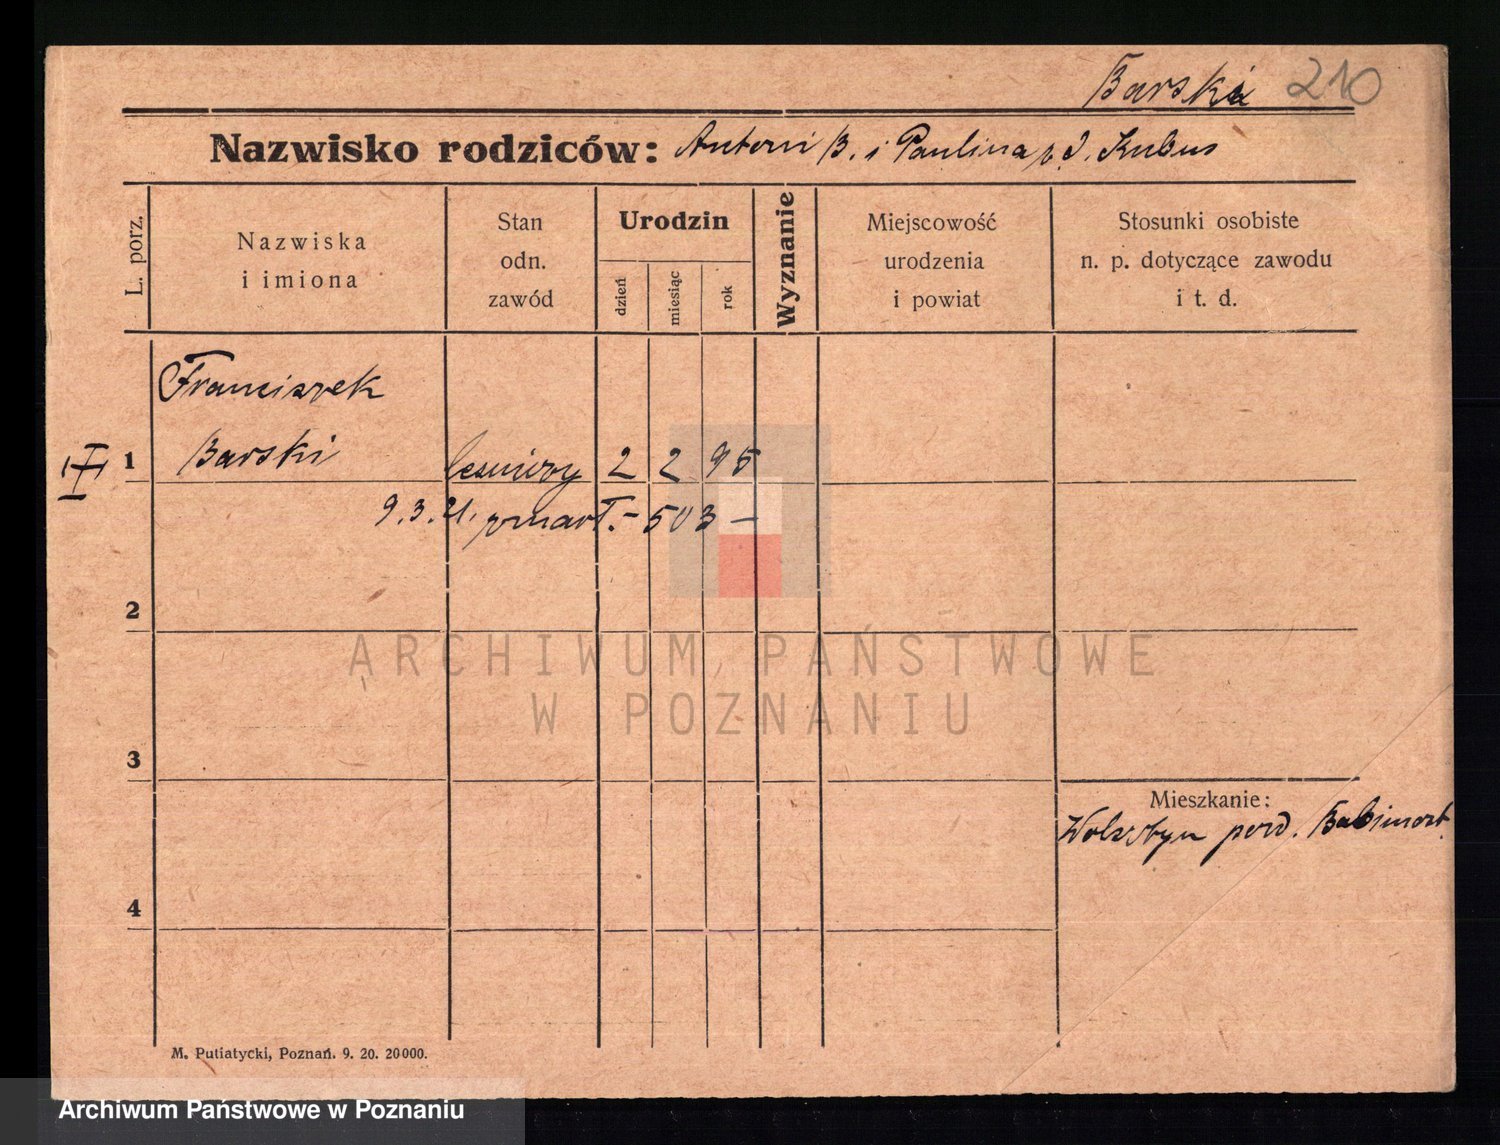 Barski 210
Nazwisko rodziców: Antoni B. i Paulina z d. Kubus
L. porz.
Nazwiska
i imiona
Stan
odn.
zawód
Urodzin
dzień
miesiąc
rok
Wyznanie
Miejscowość
urodzenia
i powiat
Stosunki osobiste
n. p. dotyczące zawodu
i t. d.
Franciszek
1 Barski leśniczy 2 2 95
9.3.21. zmarł. - 503 -
2
ARCHIWUM PAŃSTWOWE
W POZNANIU
3
Mieszkanie:
Wolsztyn Babimost.
4
M. Putiatycki, Poznań. 9. 20. 20000.
Archiwum Państwowe w Poznaniu